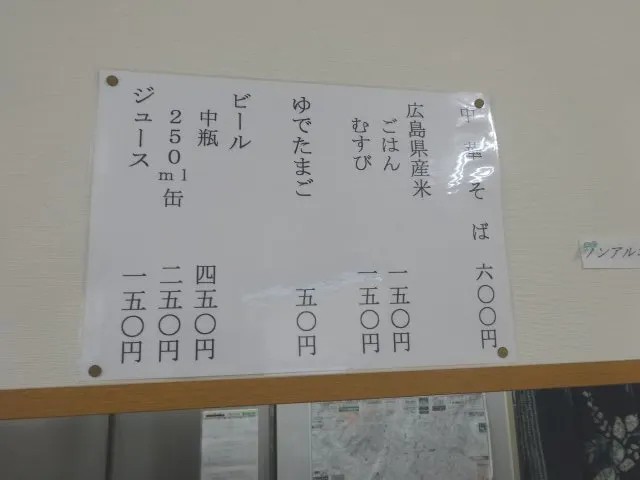 中華そば 六〇〇円
広島県産米
ごはん 一五〇円
むすび 一五〇円
ゆでたまご 五〇円
ビール
中瓶 四五〇円
250ml缶 二五〇円
ジュース 一五〇円
ノンアルコ